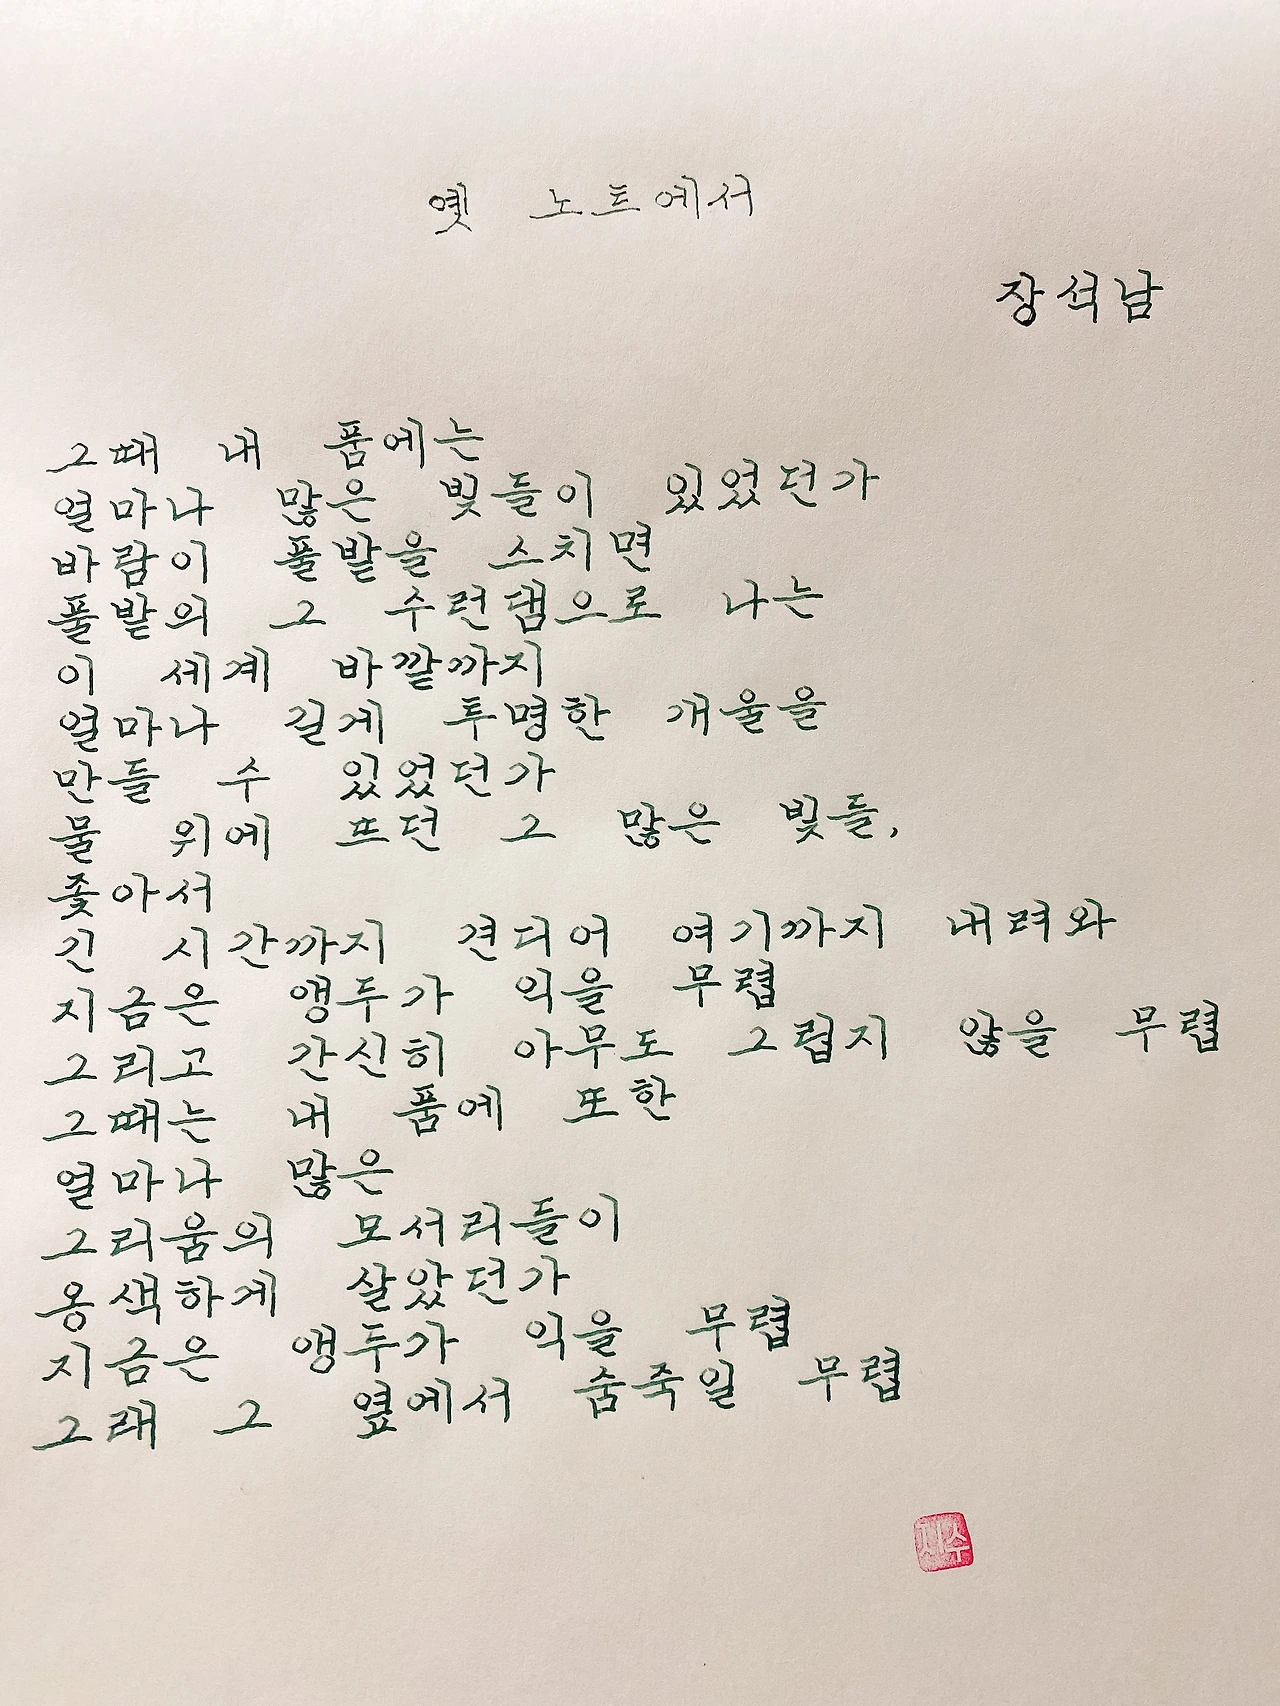 옛 노트에서
장석남
그때 내 품에는
얼마나 많은 빛들이 있었던가
바람이 풀밭을 스치면
풀밭의 그 수런댐으로 나는
이 세계 바깥까지
얼마나 길게 투명한 개울을
만들 수 있었던가
물 위에 뜨던 그 많은 빛들,
좇아서
긴 시간까지 견디어 여기까지 내려와
지금은 앵두가 익을 무렵
그리고 간신히 아무도 그립지 않을 무렵
그때는 내 품에 또한
얼마나 많은
그리움의 모서리들이
옹색하게 살았던가
지금은 앵두가 익을 무렵
그래 그 옆에서 숨죽일 무렵